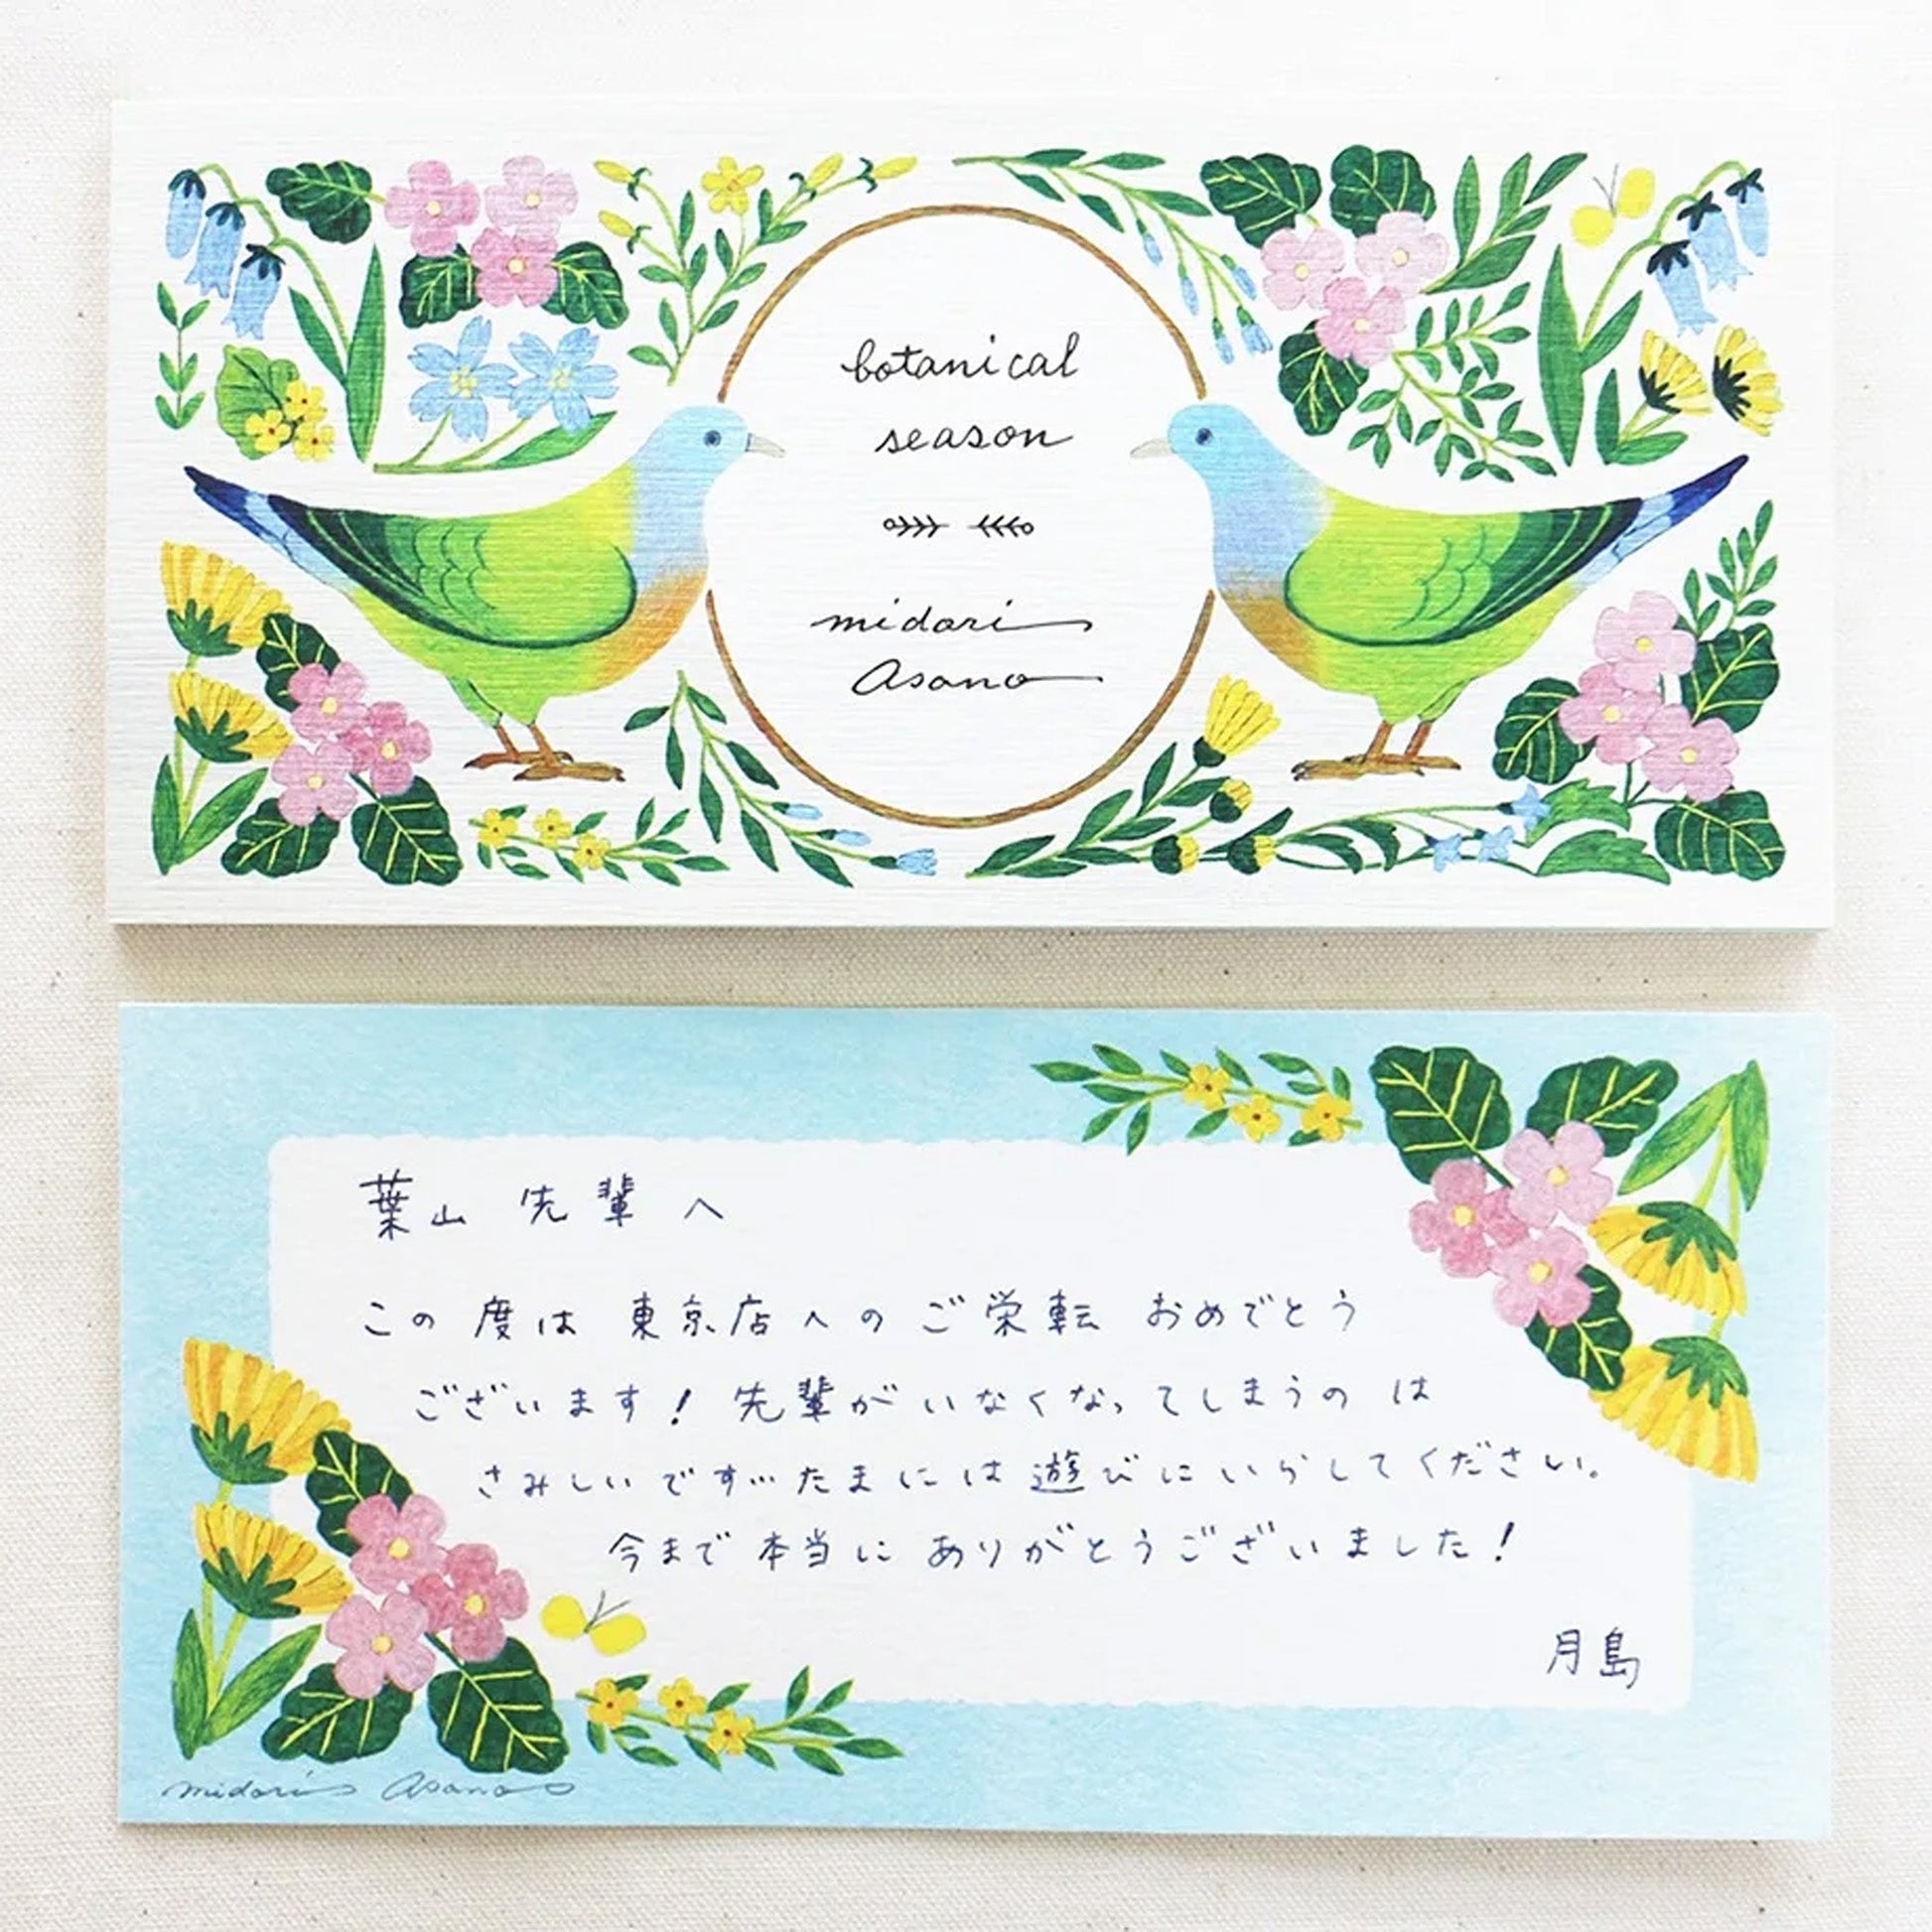 botanical
season
midori
Asano
葉山 先輩 へ
この 度は 東京店への ご栄転 おめでとう
ございます! 先輩が いなくなってしまうの は
さみしい です… たまには 遊びにいらしてください。
今まで 本当に ありがとうございました!
月島
midori Asano